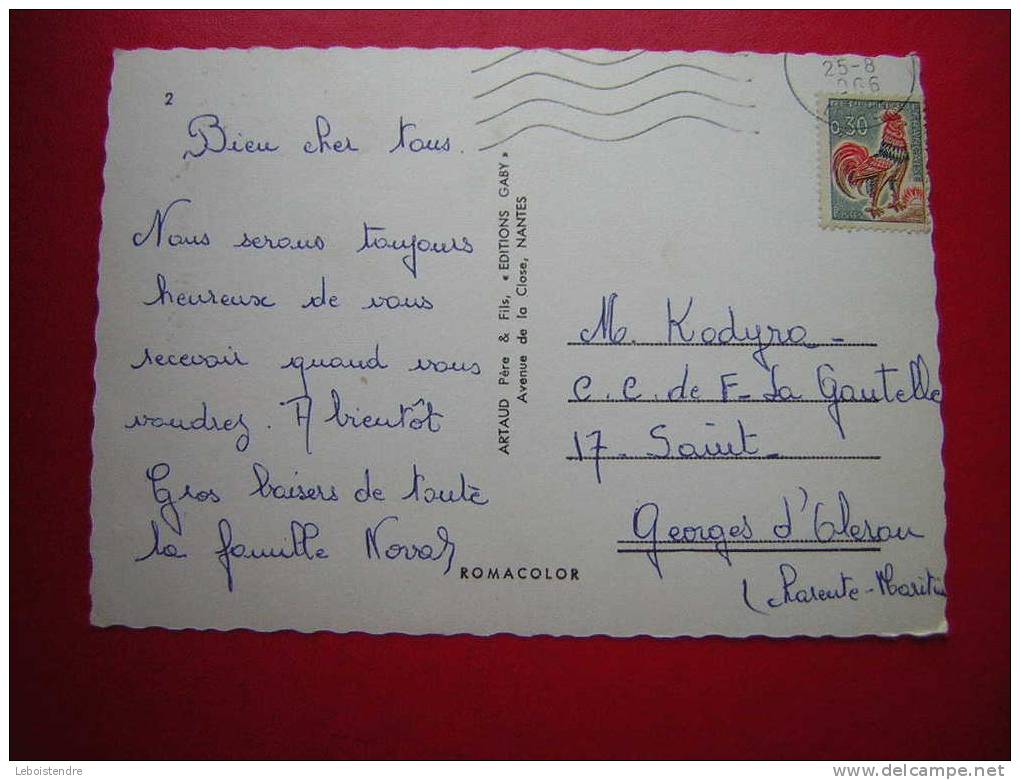 2
Bien cher tous.
Nous serons toujours
heureux de vous
recevoir quand vous
voudrez. A bientôt
Gros baisers de toute
la famille
ARTAUD Père & Fils, « EDITIONS GABY »
Avenue de la Close, NANTES
ROMACOLOR
25-8
0,30
M. Kodyra -
C.C. de F - La Gautelle
17 - Saint -
Georges d'Oleron
(Charente-Maritim
Leboistendre
www.delcampe.net